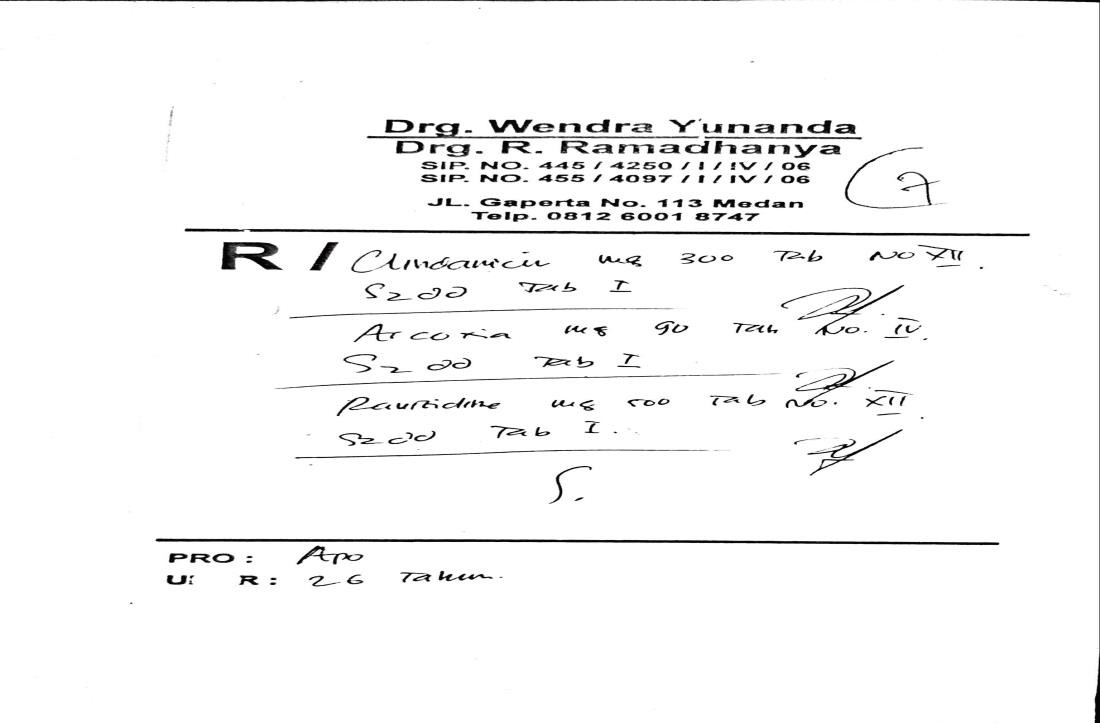 Drg. Wendra Yunanda
Drg. R. Ramadhanya
SIP. NO. 445 / 4250 / I / IV / 06
SIP. NO. 455 / 4097 / I / IV / 06
JL. Gaperta No. 113 Medan
Telp. 0812 6001 8747
R / Clindamicin mg 300 Tab No XII.
S2dd Tab I
Arcoxia mg 90 Tab No. IV.
S2dd Tab I
Ranitidine mg 500 Tab No. XII
S2dd Tab I.
S.
PRO : Apo
U R : 26 Tahun.